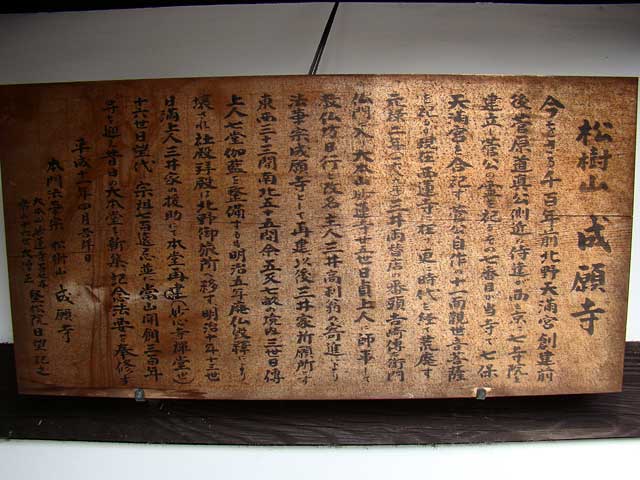 松樹山 成願寺
今をさる千百年前北野天満宮創建前
後菅原道真公側近の侍達が西ノ京に七寺院を
建立し菅公の霊を祀るその七番目が当寺で七保
天満宮を合祀す菅公自作の十一面観世音菩薩
を祀る現在西蓮寺在 更に時代を経て荒廃す
元禄二年三井両替店の番頭
仏門に入 大本山妙蓮寺廿世日貞上人に師事して
教仏坊日行と改名主人三井高利翁の寄進により
法華宗成願寺として再建以後三井家祈願所
東西二十三間南北五十五間余五反七畝の 三世日傳
上人七堂伽藍を整備するも明治五年廃仏毀釈により
壊され社殿拝殿は北野御旅所へ移す明治十年十三世
日満上人三井家の援助にて本堂再建
十六世日望代 宗祖七百遠忌並に当山開創三百年
を迎え昔日の大本堂を新築記念法要を奉修す
平成十一年四月吉祥日
本門法華宗 松樹山 成願寺
日望記之